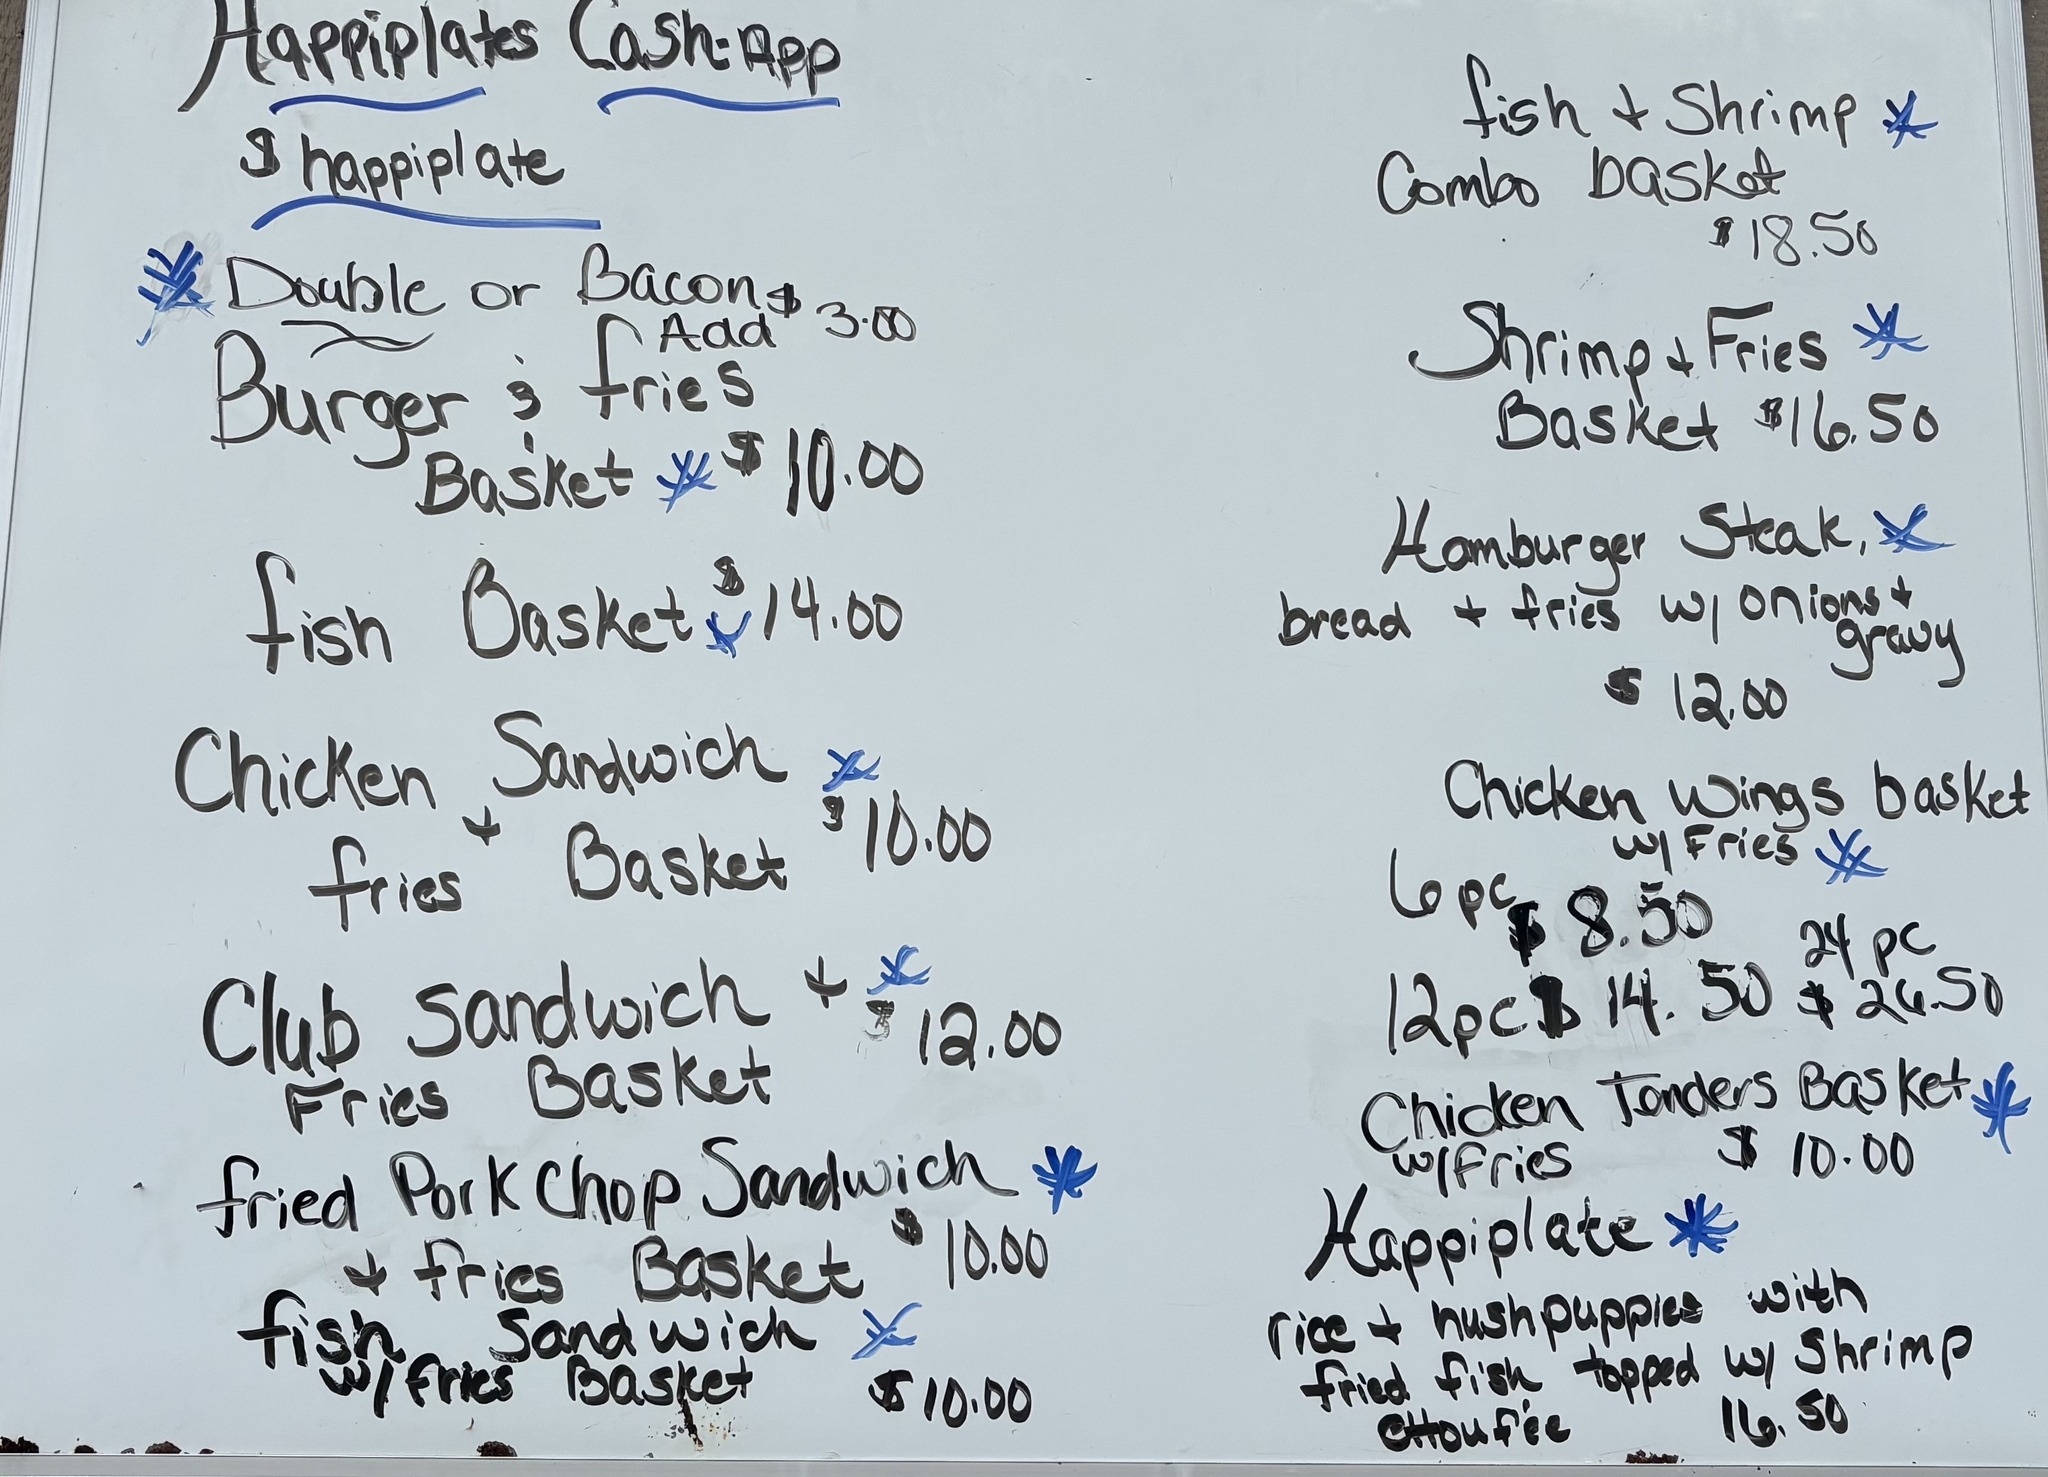 Happiplates Cash-App
$ happiplate
Double or Bacon $
Add 3.00
Burger & fries
Basket $ 10.00
fish Basket $ 14.00
Chicken Sandwich
+ $ 10.00
fries Basket
Club Sandwich +
$ 12.00
Fries Basket
fried Pork Chop Sandwich
$ 10.00
+ fries Basket
fish Sandwich
w/fries Basket $10.00
fish + Shrimp
Combo basket
$18.50
Shrimp + Fries
Basket $16.50
Hamburger Steak,
bread + fries w/ onions +
gravy
$ 12.00
Chicken wings basket
w/ Fries
6 pc $ 8.50
24 pc
12pc $ 14.50 $ 26.50
Chicken Tenders Basket
w/Fries $ 10.00
Happiplate
rice + hushpuppies with
fried fish topped w/ Shrimp
16.50